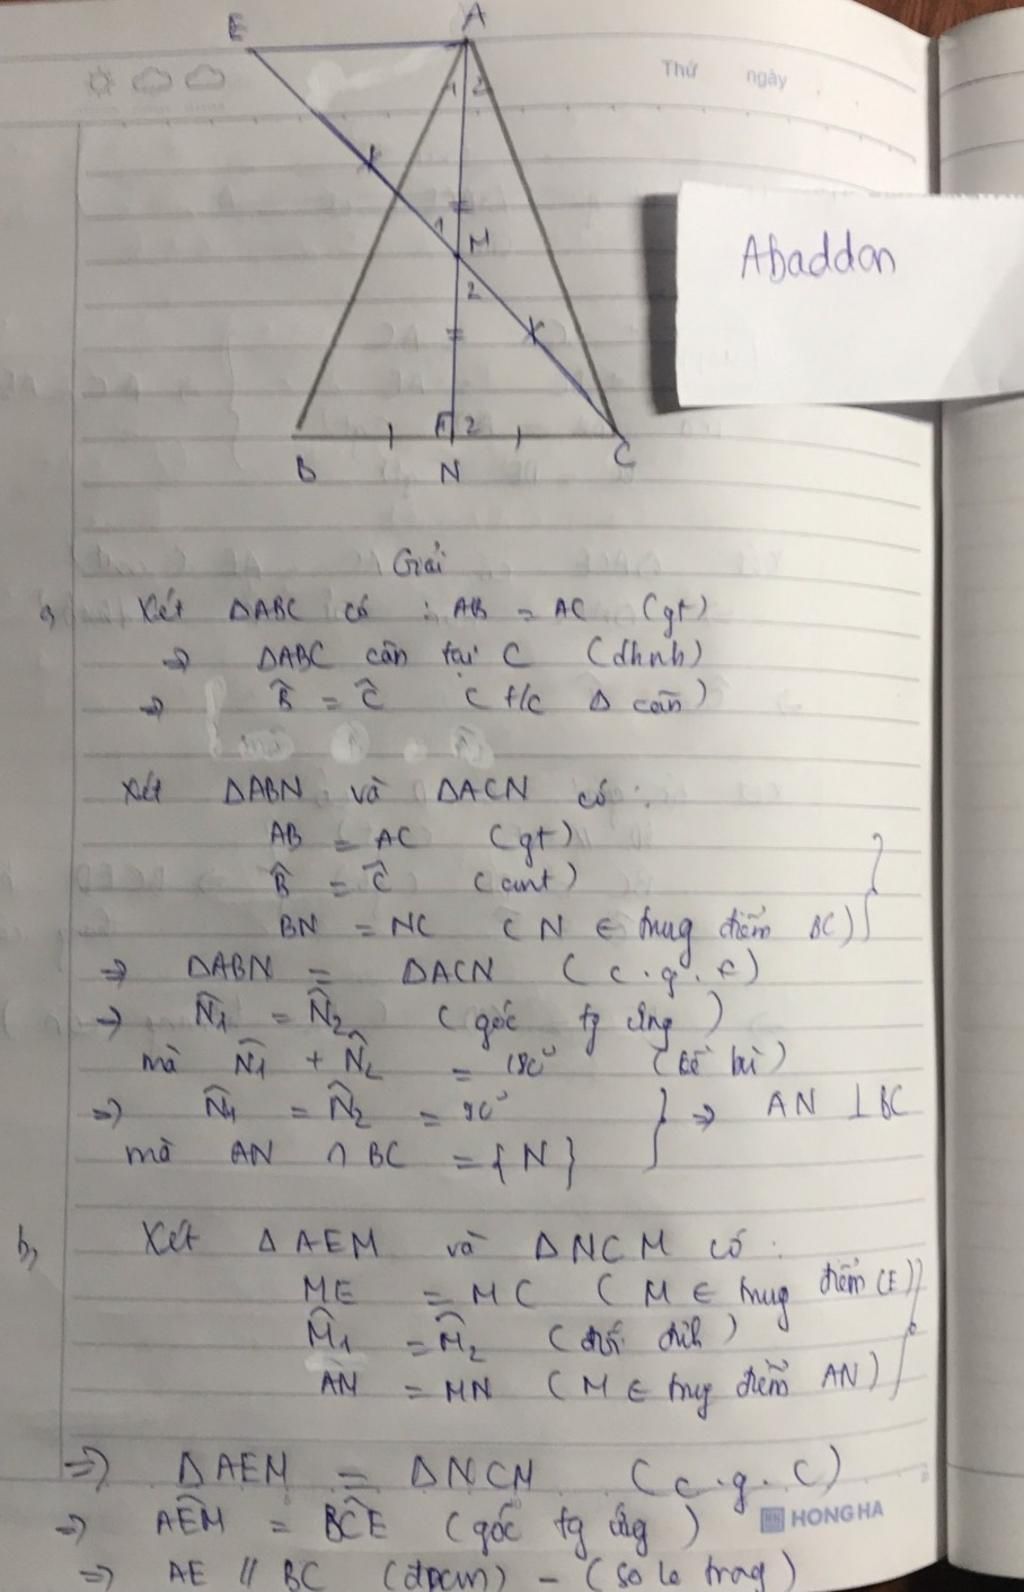 E A
Thứ ngày
1 2
1 M
2
1 2
B N C
Abaddon
Giải
a, Xét ΔABC có : AB = AC (gt)
⇒ ΔABC cân tại C (dhnb)
⇒ B̂ = Ĉ ( t/c Δ cân )
Xét ΔABN và ΔACN có :
AB = AC (gt)
B̂ = Ĉ (cmt)
BN = NC ( N ∈ trung điểm BC) }
⇒ ΔABN = ΔACN ( c.g.c )
⇒ N̂1 = N̂2 ( góc tg ứng )
mà N̂1 + N̂2 = 180° ( kề bù )
⇒ N̂1 = N̂2 = 90° } ⇒ AN ⊥ BC
mà AN ∩ BC = { N }
b, Xét ΔAEM và ΔNCM có :
ME = MC ( M ∈ trung điểm CE ) }
M̂1 = M̂2 ( đối đỉnh )
AM = MN ( M ∈ trung điểm AN )
⇒ ΔAEM = ΔNCM ( c.g.c )
⇒ AÊM = BĈE ( góc tg ứng )
HONG HA
⇒ AE // BC (đpcm) - ( so le trong )